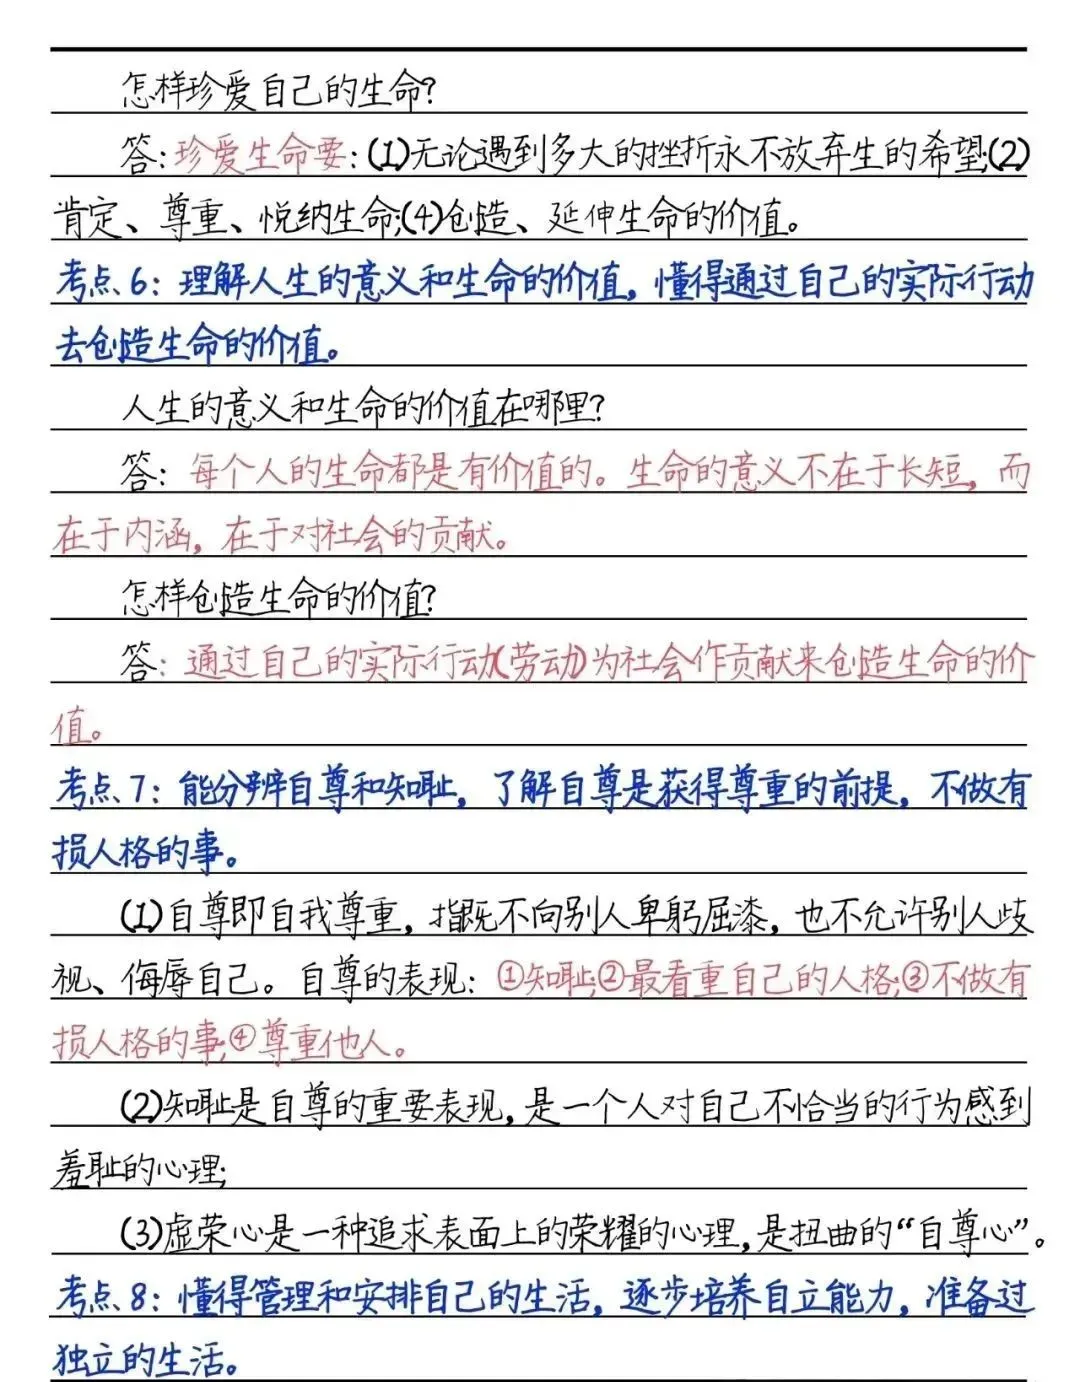 怎样珍爱自己的生命?
答:珍爱生命要:(1)无论遇到多大的挫折永不放弃生的希望;(2)
肯定、尊重、悦纳生命;(4)创造、延伸生命的价值。
考点6:理解人生的意义和生命的价值,懂得通过自己的实际行动
去创造生命的价值。
人生的意义和生命的价值在哪里?
答:每个人的生命都是有价值的。生命的意义不在于长短,而
在于内涵,在于对社会的贡献。
怎样创造生命的价值?
答:通过自己的实际行动(劳动)为社会作贡献来创造生命的价
值。
考点7:能分辨自尊和知耻,了解自尊是获得尊重的前提,不做有
损人格的事。
(1)自尊即自我尊重,指既不向别人卑躬屈漆,也不允许别人歧
视、侮辱自己。自尊的表现:①知耻;②最看重自己的人格;③不做有
损人格的事;④尊重他人。
(2)知耻是自尊的重要表现,是一个人对自己不恰当的行为感到
羞耻的心理;
(3)虚荣心是一种追求表面上的荣耀的心理,是扭曲的“自尊心”。
考点8:懂得管理和安排自己的生活,逐步培养自立能力,准备过
独立的生活。